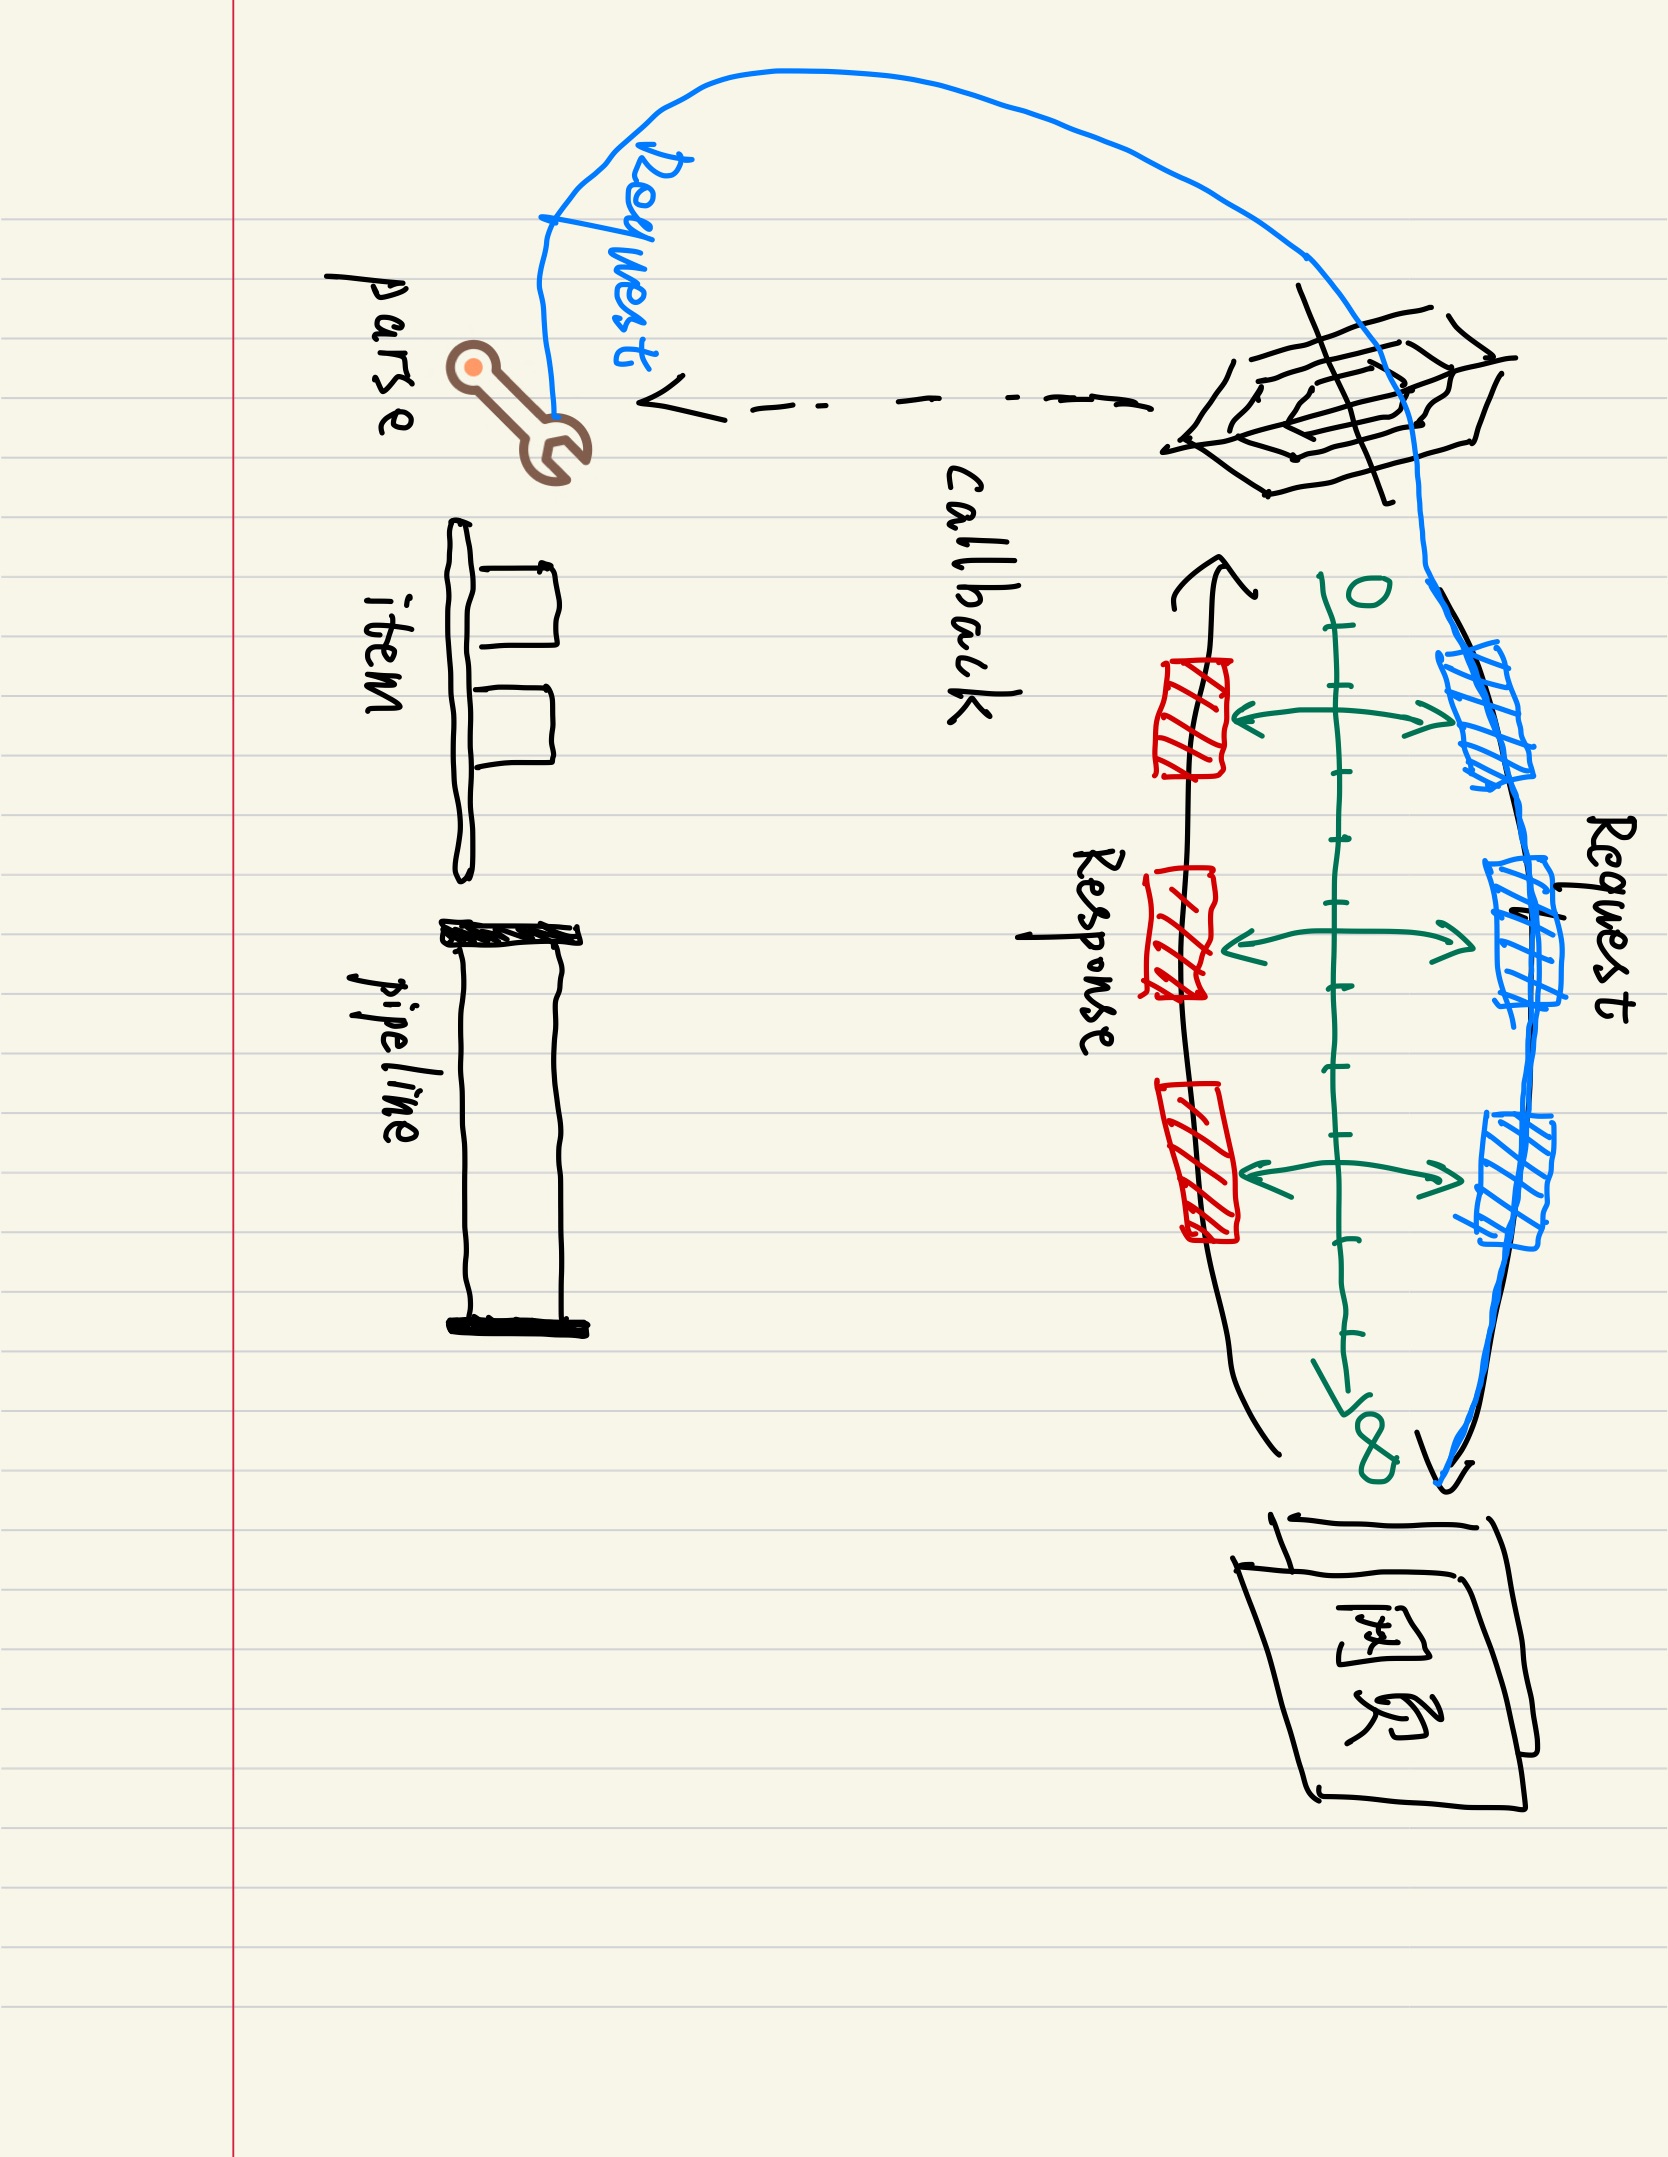 Request
0
∞
网页
Response
callback
Request
parse
item
pipeline